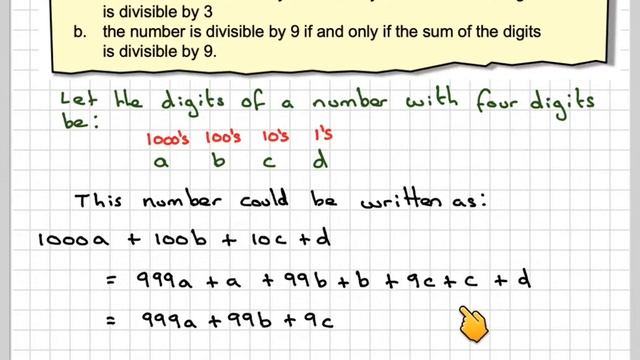 is divisible by 3
b. the number is divisible by 9 if and only if the sum of the digits
is divisible by 9.
Let the digits of a number with four digits
be:
1000's 100's 10's 1's
a b c d
This number could be written as:
1000a + 100b + 10c + d
= 999a + a + 99b + b + 9c + c + d
= 999a + 99b + 9c